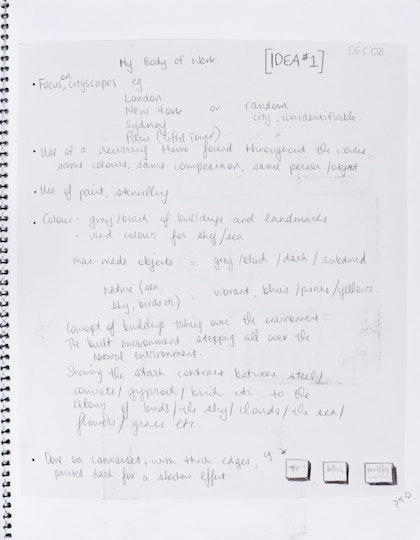 DEC '08
My Body of Work.
[IDEA #1]
• Focus on cityscapes eg
London
New York or random
Sydney city, unidentifiable.
Paris (Eiffel Tower)
• Use of a recurring theme found throughout the works,
same colours, same composition, same person/object
• Use of paint, stencilling
• Colour - grey/black of buildings and landmarks
- vivid colour for sky/sea
man-made objects = grey/black/dark/subdued
nature (sea,
sky, birds etc) = vibrant, blues/pinks/yellows.
Concept of buildings taking over the environment.
The built environment stepping all over the
natural environment.
Showing the stark contrast between steel/
concrete/gyprock/brick etc. to the
colours of birds/the sky/clouds/the sea/
flowers/grass etc.
• Done on canvasses, with thick edges, eg
painted dark for a shadow effect.
P.T.O.